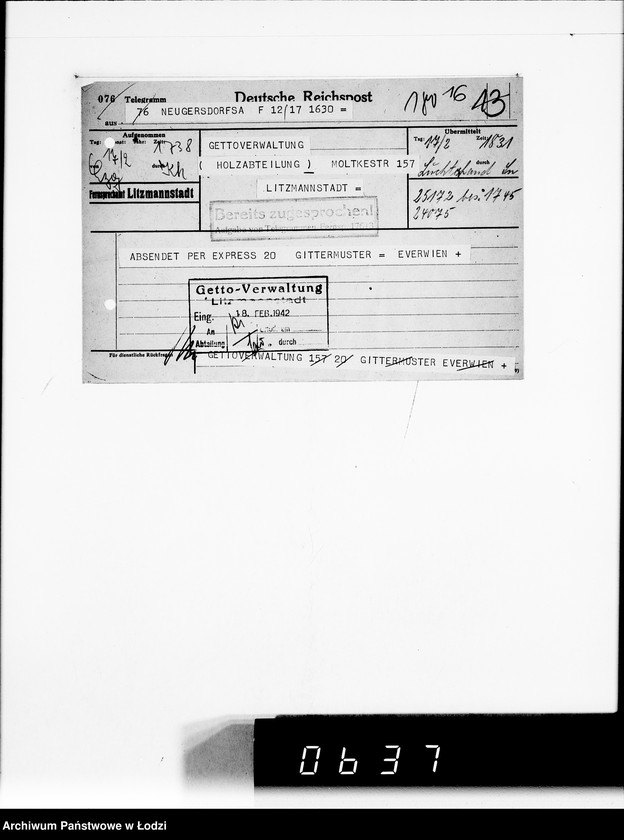 076 Telegramm Deutsche Reichspost 180 16 43
76 NEUGERSDORFSA F 12/17 1630 =
aus
Aufgenommen
Tag: Zeit:
17/2 1738
durch
Fernsprechamt Litzmannstadt
GETTOVERWALTUNG
( HOLZABTEILUNG ) MOLTKESTR 157
LITZMANNSTADT =
Bereits zugesprochen!
Übermittelt
Tag: 17/2 Zeit: 1831
durch
25172 bes 1745
24075
ABSENDET PER EXPRESS 20 GITTERMUSTER = EVERWIEN +
Getto-Verwaltung
Litzmannstadt
Eing. 18. FEB. 1942
An
Abteilung
durch
Für dienstliche Rückfragen
GETTOVERWALTUNG 157 20 GITTERMUSTER EVERWIEN +
0637
Archiwum Państwowe w Łodzi